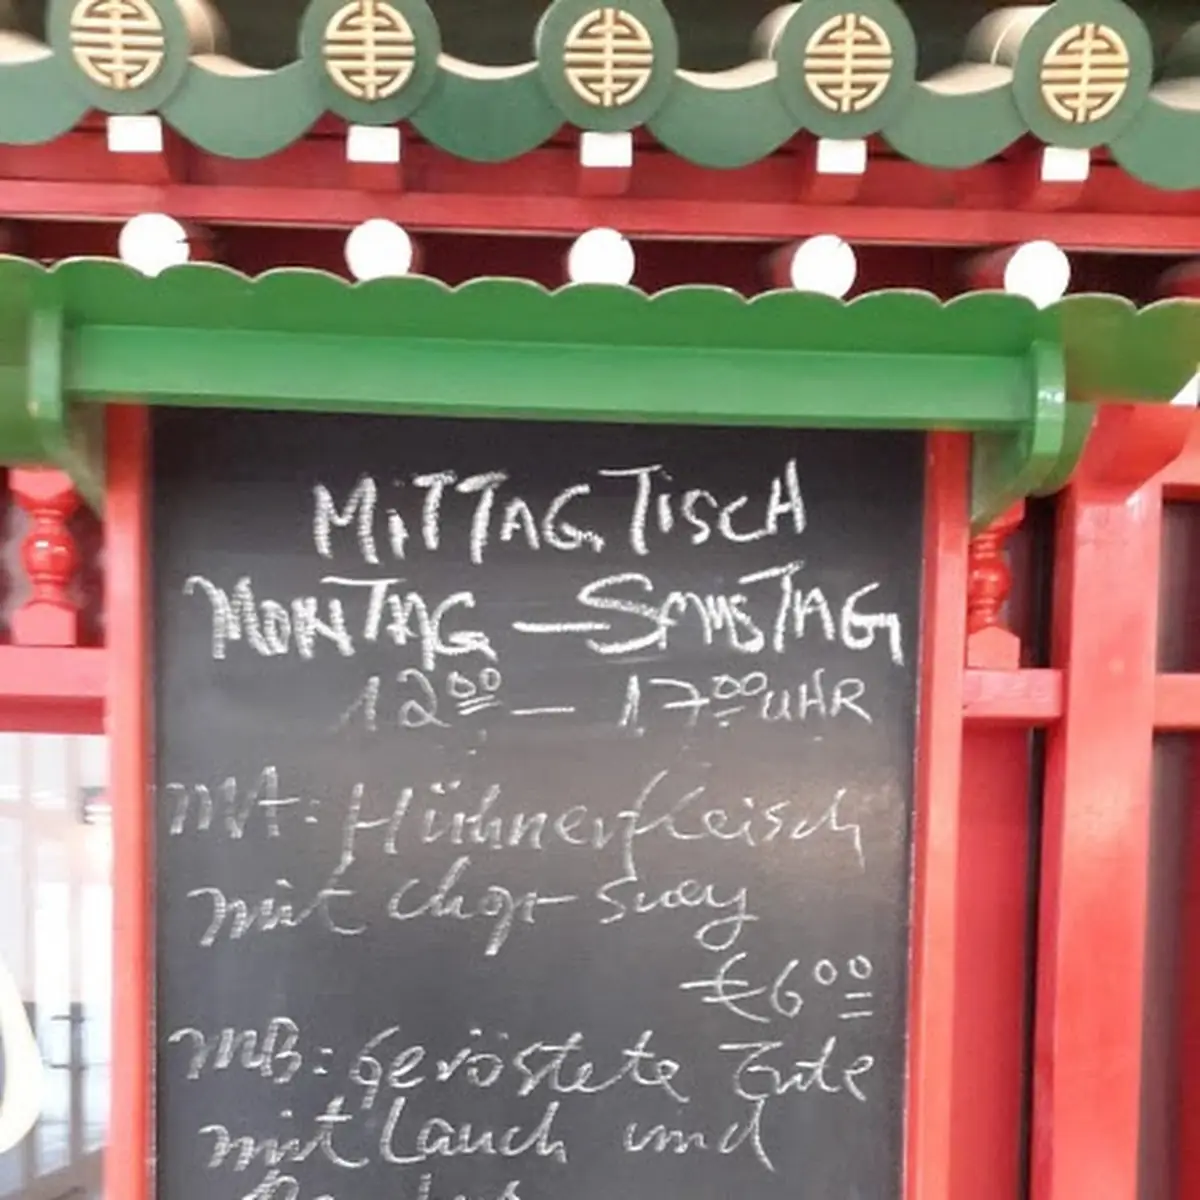 MITTAGTISCH
MONTAG – SAMSTAG
12⁰⁰ – 17⁰⁰ UHR
MA: Hühnerfleisch
mit chop-suey
€6⁰⁰
MB: Geröstete Ente
mit Lauch und